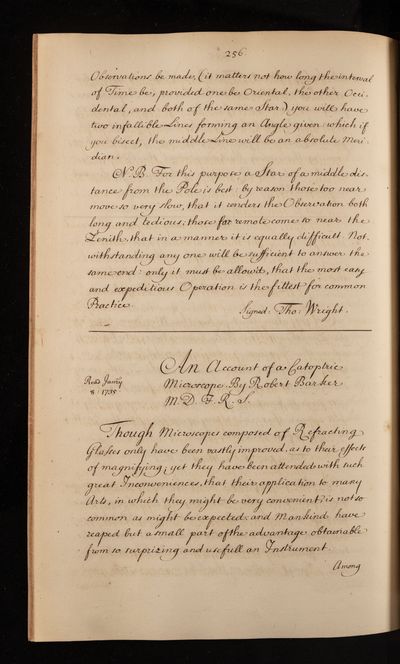 256
Observations be made, (it matters not how long the interval
of Time be, provided one be Oriental, the other Occi-
dental, and both of the same Star) you will have
two infallible Lines forming an Angle given which if
you bisect, the middle Line will be an absolute Meri-
dian.
N.B. For this purpose a Star of a middle dis-
tance from the Pole is best by reason those too near
move so very slow, that it renders the Observation both
long and tedious; those far remote come so near the
Zenith, that in a manner it is equally difficult. Not-
withstanding any one will be sufficient to answer the
same end: only it must be allow'd, that the most easy
and expeditious Operation is the fittest for common
Practice.
Signed: Tho: Wright.
An Account of a Catoptric
Read Janry
8. 1735
Microscope. By Robert Barker
M.D. F.R.S.
Though Microscopes composed of Refracting
Glasses only have been vastly improved, as to their effects
of magnifying; yet they have been attended with such
great Inconveniences, that their application to many
Arts, in which they might be very convenient, is not so
common as might be expected; and Mankind have
reaped but a small part of the advantage obtainable
from so surprizing and usefull an Instrument.
Among